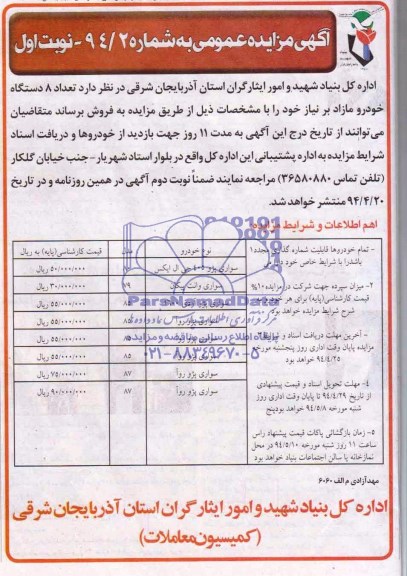 آگهی مزایده عمومی به شماره ۹۴/۲ - نوبت اول
اداره کل بنیاد شهید و امور ایثارگران استان آذربایجان شرقی در نظر دارد تعداد ۸ دستگاه
خودرو مازاد بر نیاز خود را با مشخصات ذیل از طریق مزایده به فروش برساند متقاضیان
می‌توانند از تاریخ درج این آگهی به مدت ۱۱ روز جهت بازدید از خودروها و دریافت اسناد
شرایط مزایده به اداره پشتیبانی این اداره کل واقع در بلوار استاد شهریار - جنب خیابان گلکار
(تلفن تماس ۳۶۵۸۰۸۸۰) مراجعه نمایند ضمناً نوبت دوم آگهی در همین روزنامه و در تاریخ
۹۴/۴/۲۰ منتشر خواهد شد.
اهم اطلاعات و شرایط مزایده:
۱- تمام خودروها قابلیت شماره گذاری مجدد
باشد را با شرایط خاص خود دارا
۲- میزان سپرده جهت شرکت در مزایده ۱۰%
قیمت کارشناسی (پایه) برای هر خودرو
شرح شرایط مزایده خواهد بود
- آخرین مهلت دریافت اسناد و
مزایده پایان وقت اداری روز پنجشنبه مورخه
۹۴/۴/۲۵ خواهد بود
۴- مهلت تحویل اسناد و قیمت پیشنهادی
از تاریخ ۹۴/۴/۲۹ تا پایان وقت اداری روز
شنبه مورخه ۹۴/۵/۸ خواهد بود
۵- زمان بازگشائی پاکات قیمت پیشنهاد راس
ساعت ۱۱ روز شنبه مورخه ۹۴/۵/۱۰ در محل
نمازخانه یا سالن اجتماعات بنیاد خواهد بود
نوع خودرو مدل قیمت کارشناسی (پایه) به ریال
سواری پژو ۴۰۵ جی ال ایکس ۵۰/۰۰۰/۰۰۰ ریال
سواری وانت پیکان ۷۹ ۳۰/۰۰۰/۰۰۰ ریال
۵۵/۰۰۰/۰۰۰ ریال
سواری پژو روآ ۸۵ ۵۵/۰۰۰/۰۰۰ ریال
۸۵ ۵۵/۰۰۰/۰۰۰ ریال
سواری پژو روآ ۸۵ ۵۵/۰۰۰/۰۰۰ ریال
سواری پژو روآ ۸۷ ۷۵/۰۰۰/۰۰۰ ریال
سواری پژو روآ ۸۷ ۹۰/۰۰۰/۰۰۰ ریال
ParsNamadData
پایگاه اطلاع رسانی مناقصه و مزایده
۰۲۱-۸۸۳۴۹۶۷۰-۵
مهدآزادی م الف ۶۰۶۰
اداره کل بنیاد شهید و امور ایثارگران استان آذربایجان شرقی
(کمیسیون معاملات)